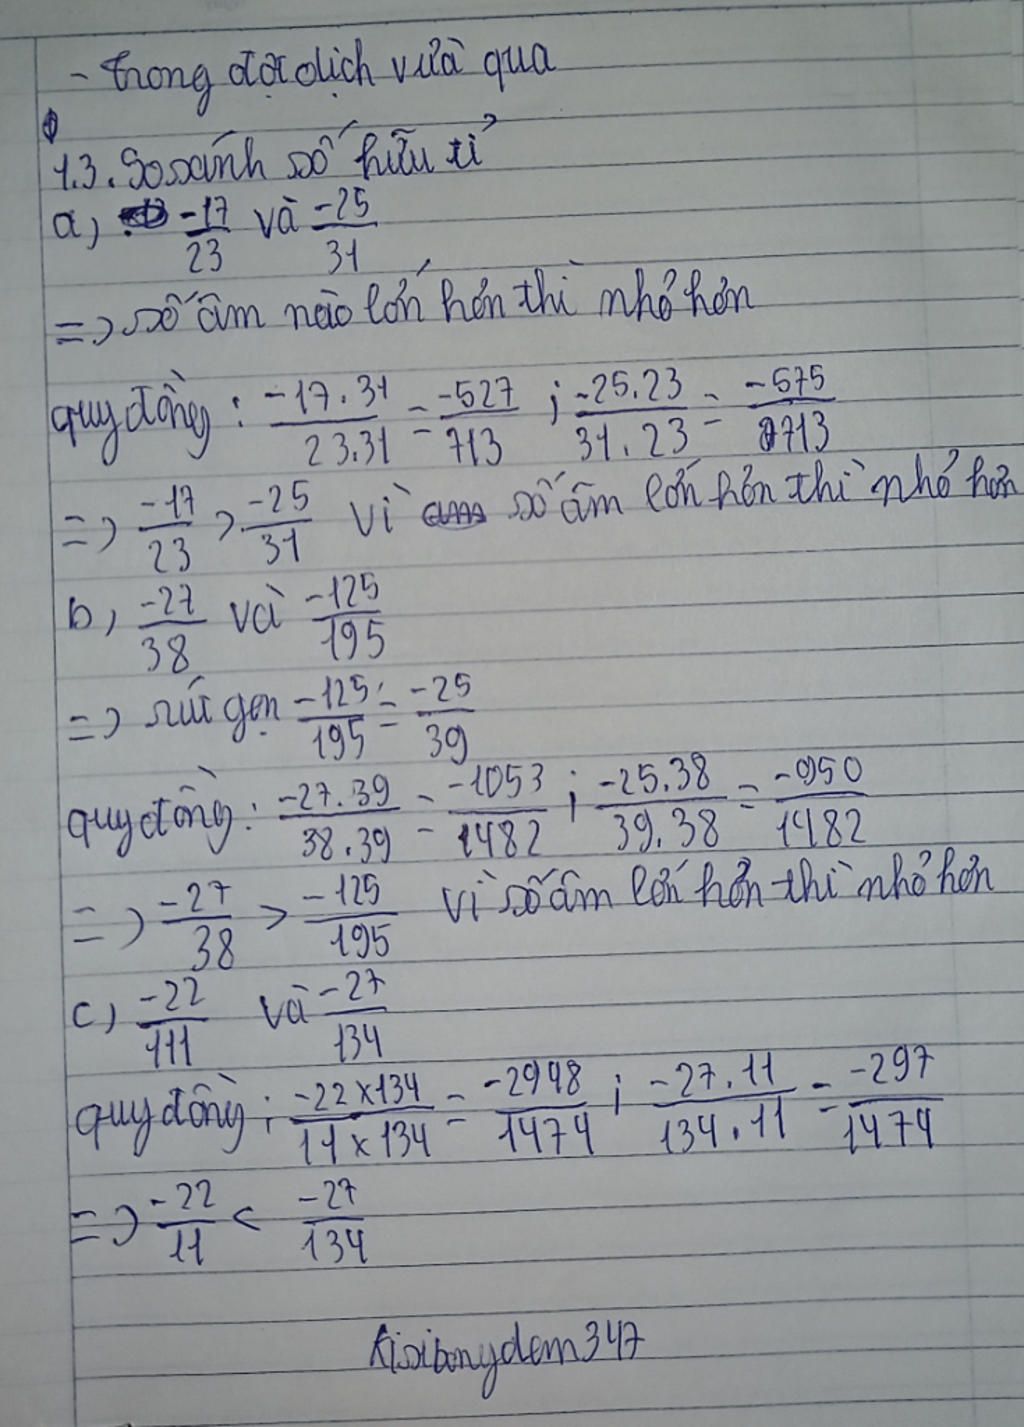 - trong đợt dịch vừa qua
1.3. So sánh số hữu tỉ
a, -17/23 và -25/31
=> số âm nào lớn hơn thì nhỏ hơn
quy đồng : -17.31/23.31 = -527/713 ; -25.23/31.23 = -575/713
=> -17/23 > -25/31 vì số âm lớn hơn thì nhỏ hơn
b, -27/38 và -125/195
=> rút gọn -125/195 = -25/39
quy đồng : -27.39/38.39 = -1053/1482 ; -25.38/39.38 = -950/1482
=> -27/38 > -125/195 vì số âm lớn hơn thì nhỏ hơn
c, -22/111 và -27/134
quy đồng : -22x134/11x134 = -2948/1474 ; -27.11/134.11 = -297/1474
=> -22/11 < -27/134